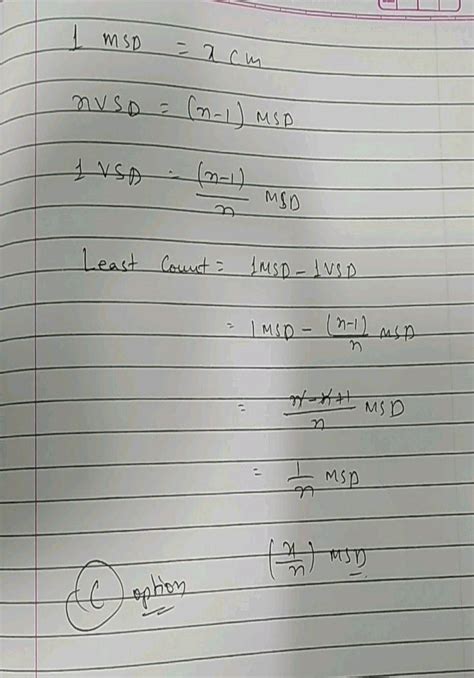 1 MSD = x cm
nVSD = (n-1) MSD
1 VSD = (n-1)/n MSD
Least Count = 1MSD - 1VSD
= 1MSD - (n-1)/n MSD
= n-n+1/n MSD
= 1/n MSD
(x/n) MSD
(C) option